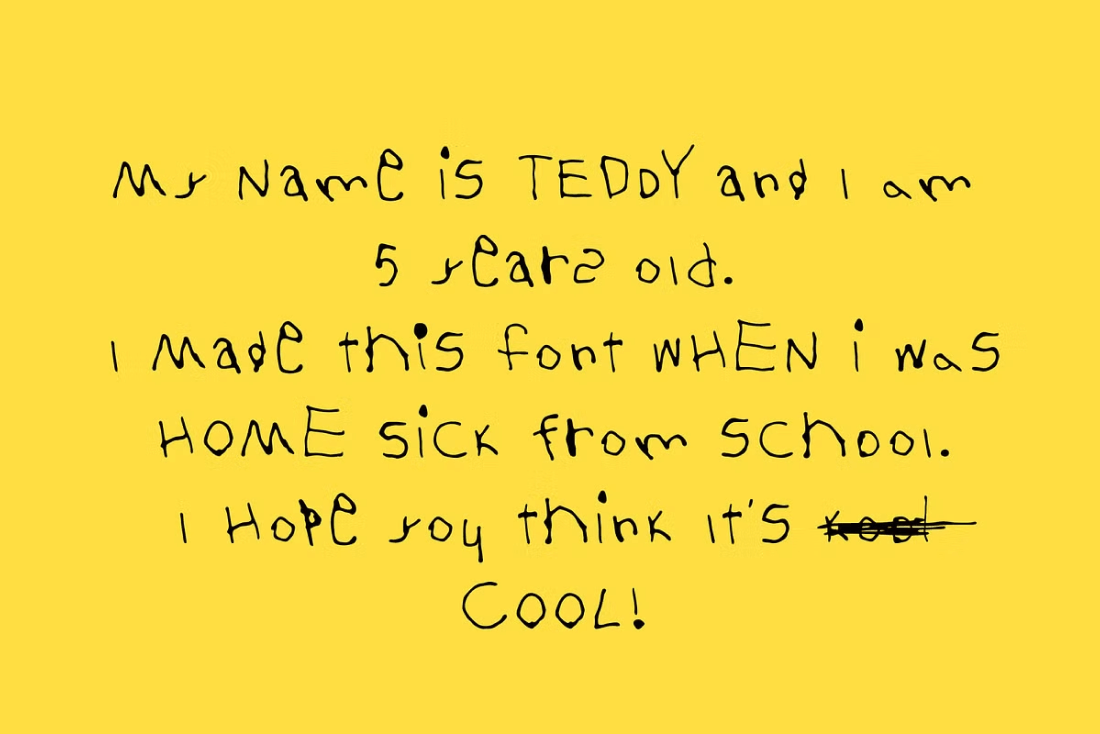 My Name is TEDDY and I am
5 years old.
I Made this font WHEN i was
HOME SiCK from SChool.
I Hope you think It's kool
COOL!